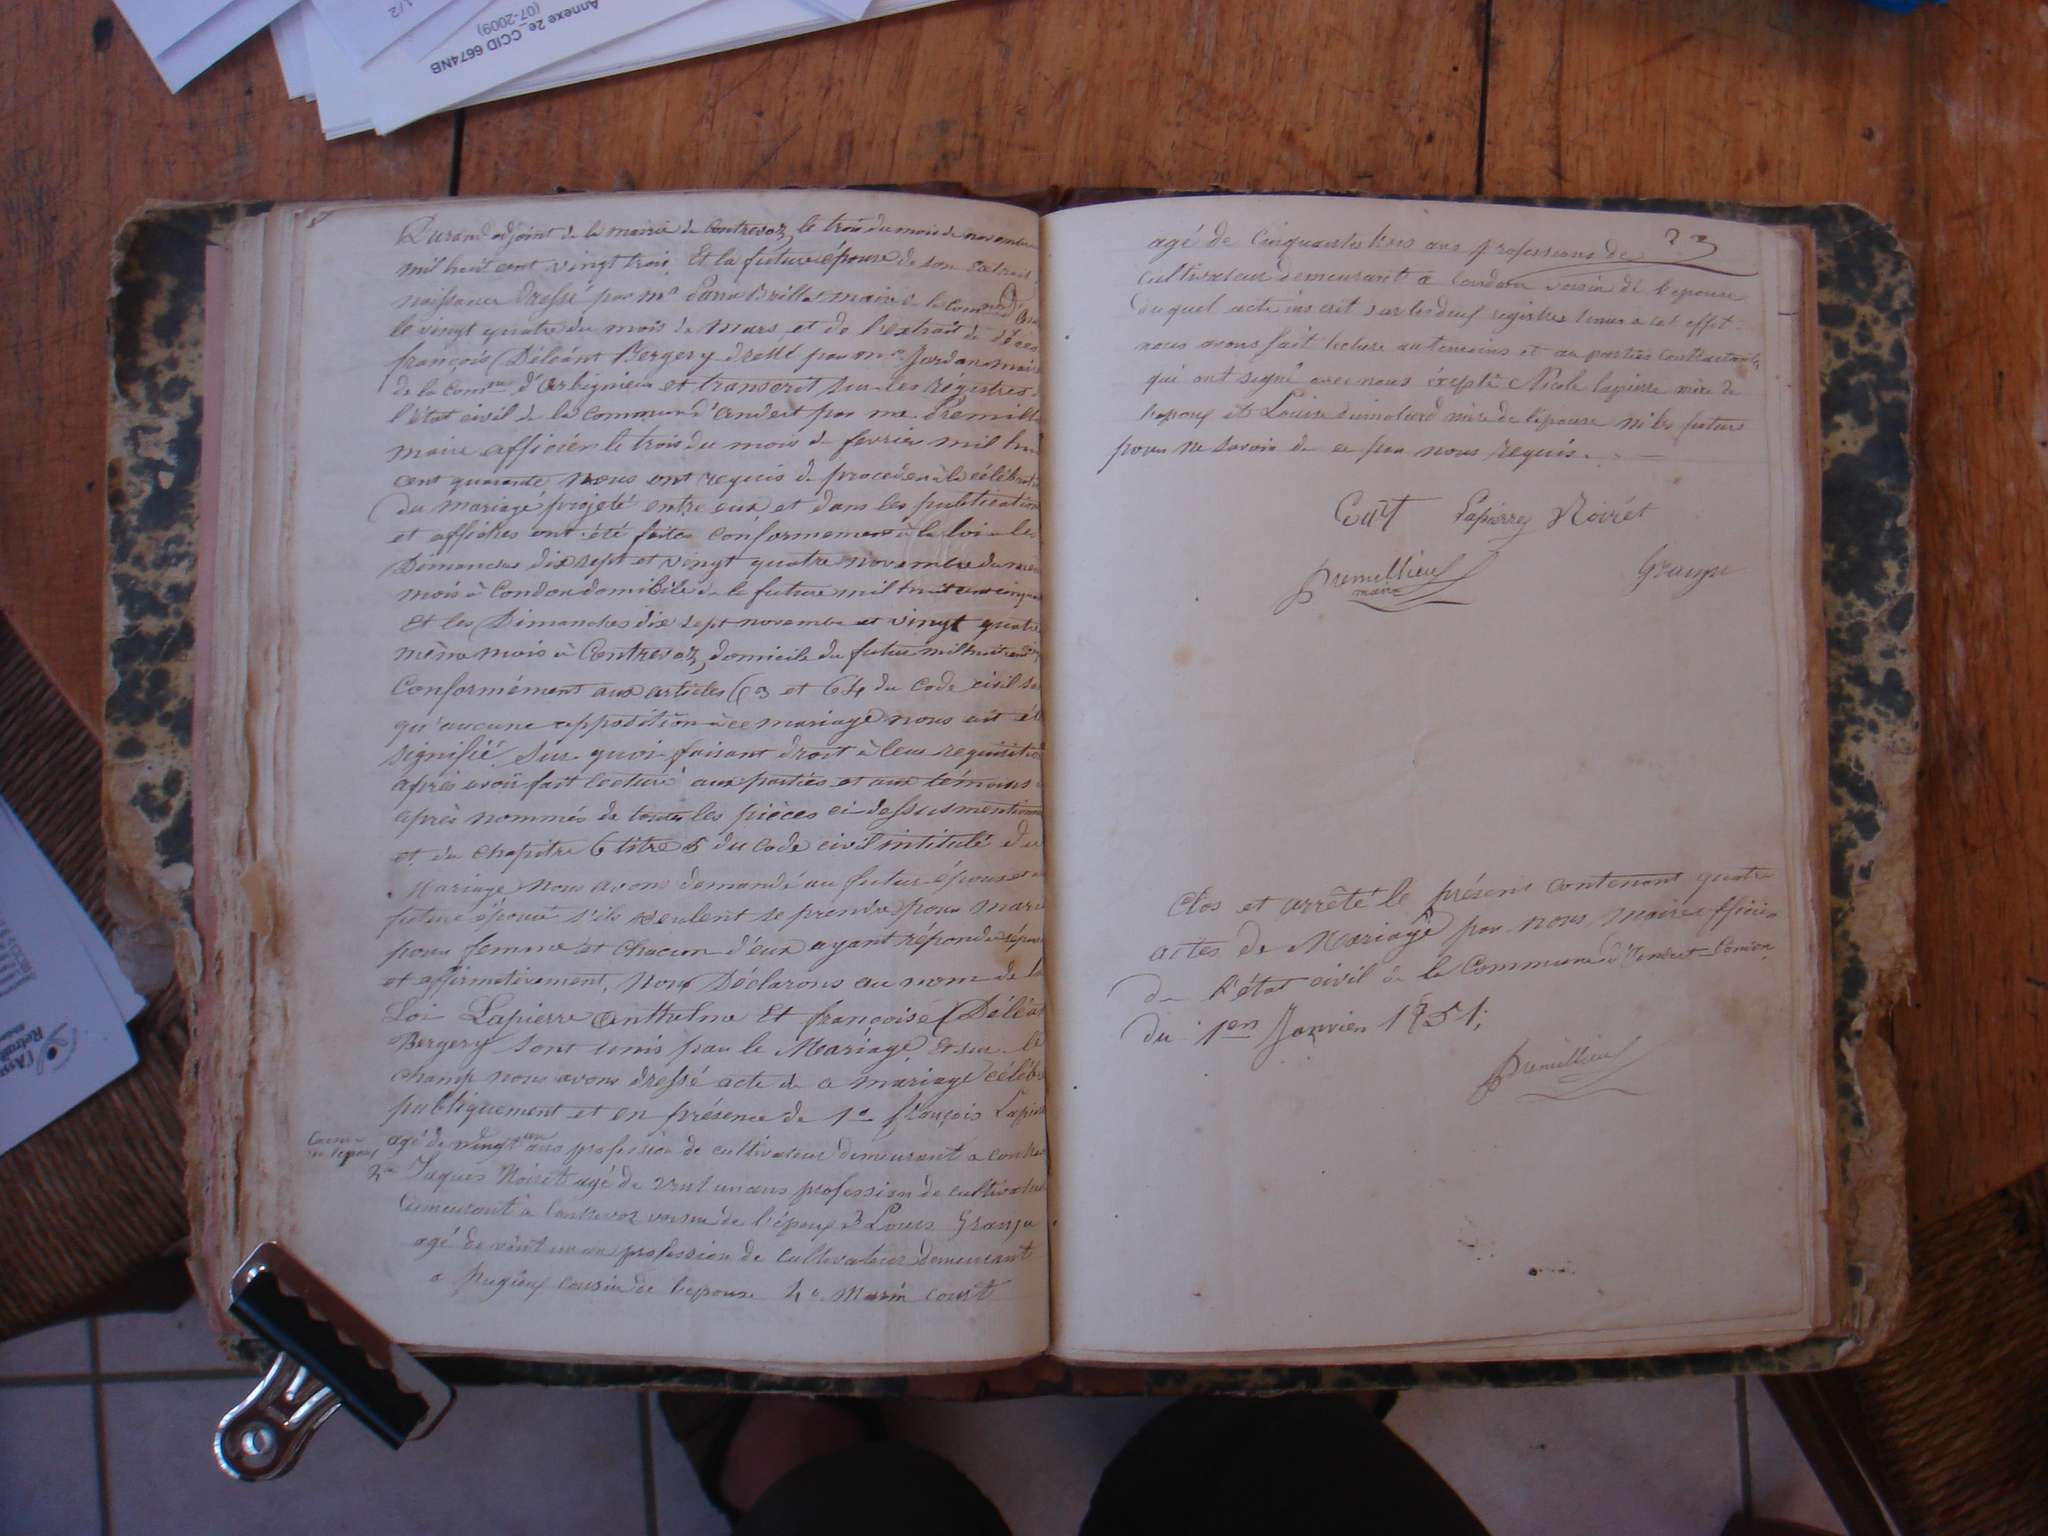 Annexe 2e CCID 6674NB
(07-2009)
1/2
Durand adjoint de la mairie de Contrevoz, le trois du mois de novembre
mil huit cent vingt trois. Et la future épouse de son extrait
naissance dressé par mr maire de la comne
le vingt quatre du mois de Mars et de l'extrait de décès
françois Déléant Bergery dressé par mr Jordan maire
de la comne d'Arbignieu et transcrit sur les registres
l'état civil de la commune d'andert par mr Premill
maire officier le trois du mois de fevrier mil huit
cent quarante nous ont requis de proceder à la célébrat
du mariage projeté entre eux et dans les publication
et affiches ont été faites conformement à la loi les
Dimanches dix sept et vingt quatre novembre du
mois à Condon domicile de la future mil huit cent cinqu
Et les Dimanches dix sept novembre et vingt quatre
même mois à Contrevoz, domicile du futur mil huit cent
Conformément aux articles 63 et 64 du Code civil sa
qu'aucune opposition à ce mariage nous ait été
signifié. Sur quoi faisant droit à leur requisitio
après avoir fait lecture aux parties et aux témoins
après nommés de toutes les pièces ci-dessus mentionn
et du chapitre 6 titre 5 du code civil intitulé du
Mariage Nous avons demandé au futur époux et
future épouse s'ils veulent se prendre pour mari
pour femme et chacun d'eux ayant répondu sépar
et affirmativement, Nous Déclarons au nom de la
Loi Lapierre Anthelme Et françoise Déléan
Bergery sont unis par le Mariage. Et sur le
champ nous avons dressé acte de ce mariage célébr
publiquement et en présence de 1° françois Lapier
agé de vingt un ans profession de cultivateur demeurant a contre
de l'époux
2° Jaques Noiret agé de vint un ans profession de cultivateur
demeurant à Contrevoz voisin de l'époux 3 Louis Grange
agé de vint un an profession de cultivateur demeurant
a Pugieu cousin de l'epouse 4° Marin court
23
agé de Cinquante trois ans professions de
Cultivateur demeurant a Condon voisin de l'epouse
Duquel acte inscrit sur les deux registres tenus a cet effet
nous avons fait lecture au temoins et au parties Contractantes
qui ont signé avec nous éxepté Nicole lapierre mère de
l'epoux et Louise dumolard mère de l'épouse ni les futurs
pour ne Savoir de ce par nous requis.
Curt Lapierre Noirét
Premillieu Grange
maire
Clos et arrêté le présent contenant quatre
actes de Mariage par nous, maire officier
de l'état civil de la Commune d'Andert-Condon
du 1er Janvier 1851;
Premillieu